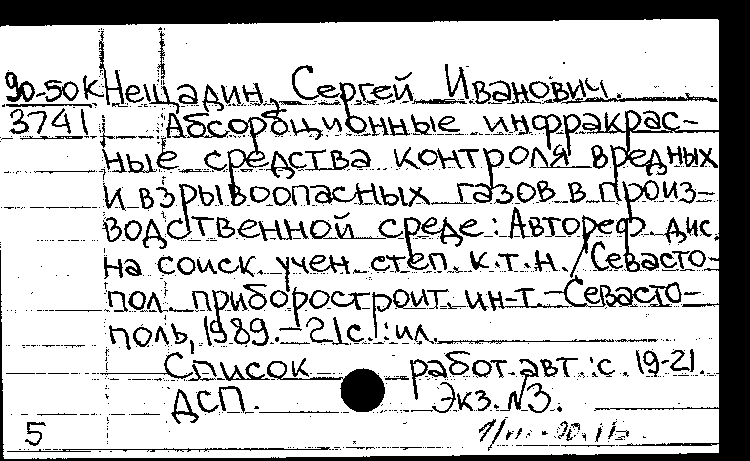 90-50К Нещадин, Сергей Иванович.
3741 Абсорбционные инфракрас-
ные средства контроля вредных
и взрывоопасных газов в произ-
водственной среде : Автореф. дис.
на соиск. учен. степ. к.т.н. / Севасто-
пол. приборостроит. ин-т. - Севасто-
поль, 1989. - 21 с. : ил.
Список работ авт.: с. 19-21.
ДСП. Экз. №3.
5